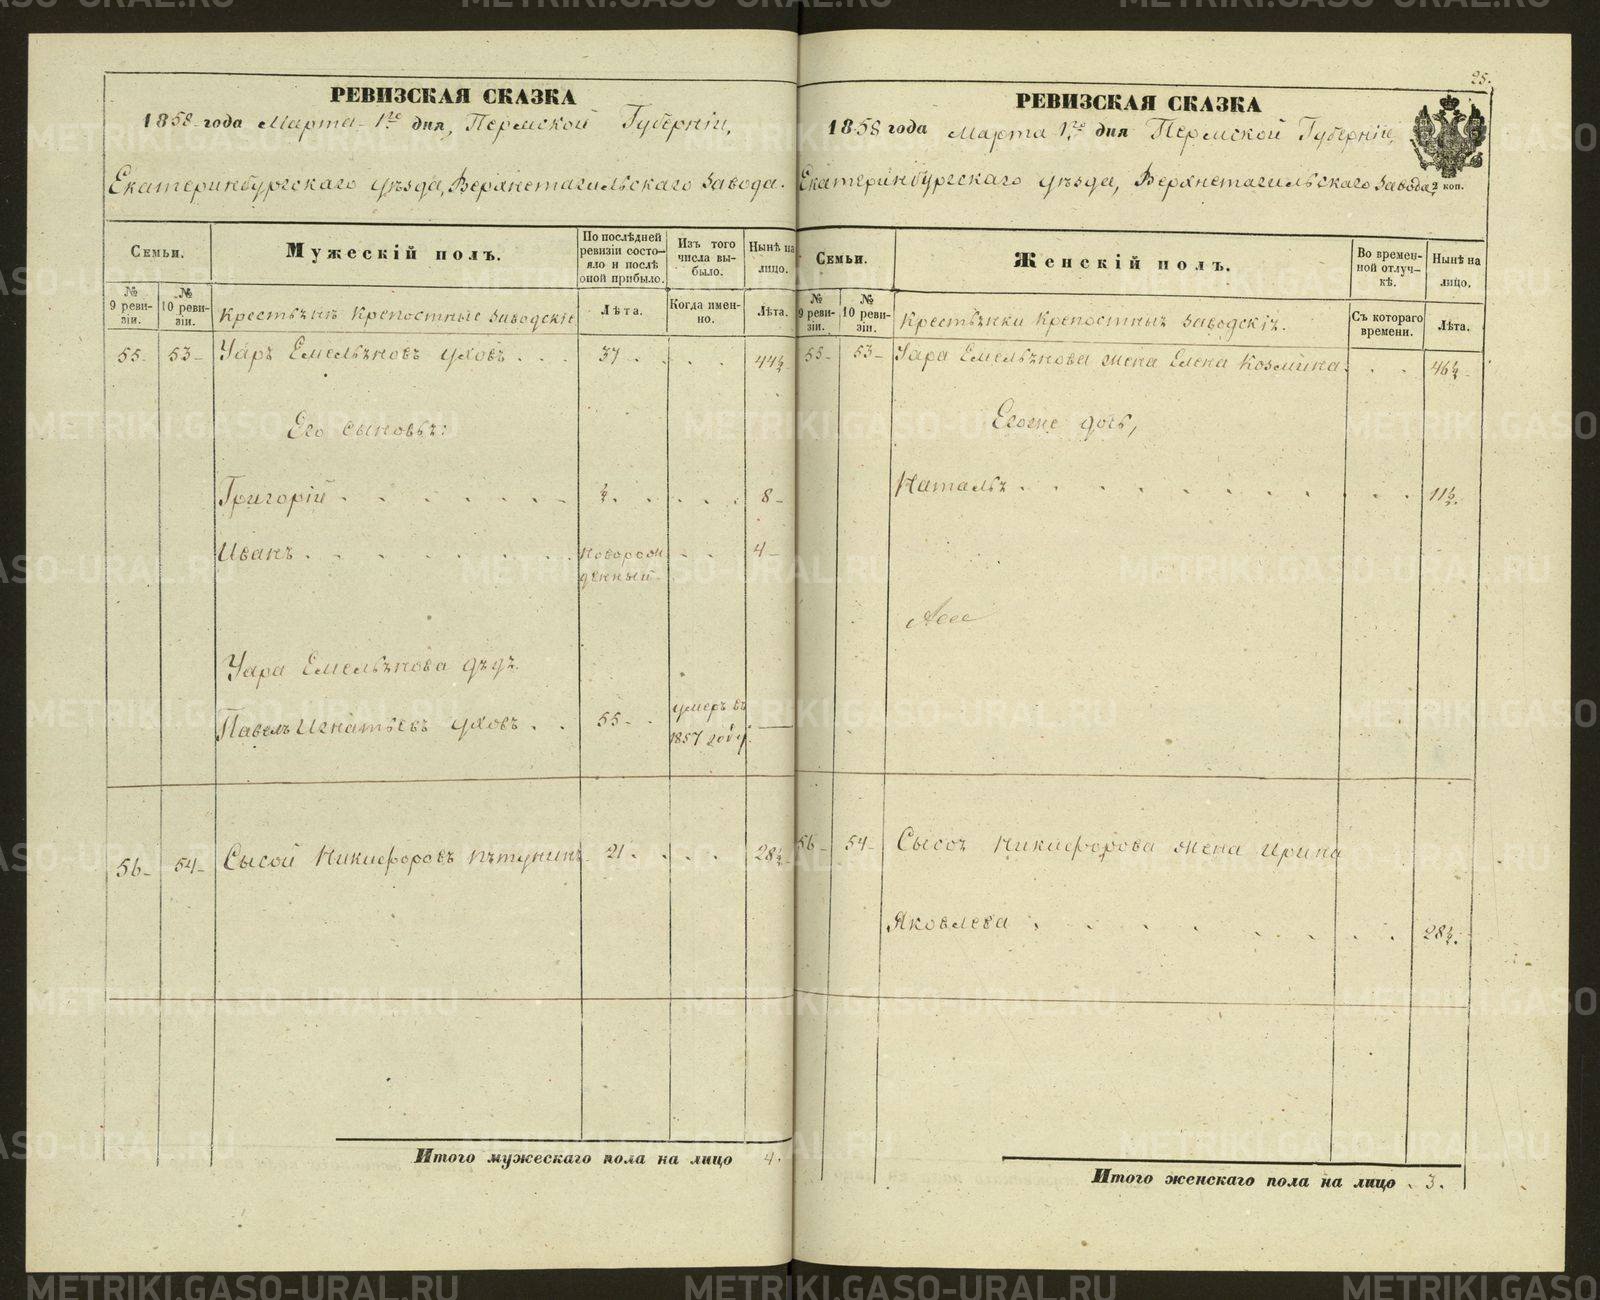 25.
РЕВИЗСКАЯ СКАЗКА
1858 года Марта 1го дня, Пермской Губерніи,
Екатеринбургскаго уѣзда, Верхнетагильскаго завода.
Семьи.
Мужескій полъ.
По послѣдней ревизіи состояло и послѣ оной прибыло.
Изъ того числа выбыло.
Нынѣ на лицо.
№ 9 ревизіи.
№ 10 ревизіи.
Крестьянъ крепостные заводскіе
Лѣта.
Когда именно.
Лѣта.
55 53 Уаръ Емельяновъ Уховъ . . . 37 . . . 44½
Его сыновья:
Григорій . . . . . . . ½ . . . . 8
Иванъ . . . . . . . новорож . . . 4
денный
Уара Емельянова дядя
Павелъ Игнатьевъ Уховъ . . 55 . умеръ въ —
1857 году.
56 54 Сысой Никифоровъ Пятунинъ 21 . . . . 28½
Итого мужескаго пола на лицо 4.
РЕВИЗСКАЯ СКАЗКА
1858 года Марта 1го дня Пермской Губерніи,
Екатеринбургскаго уѣзда, Верхнетагильскаго завода,
2 коп.
Семьи.
Женскій полъ.
Во временной отлучкѣ.
Нынѣ на лицо.
№ 9 ревизіи.
№ 10 ревизіи.
Крестьянки крепостныя заводскія.
Съ котораго времени.
Лѣта.
55 53 Уара Емельянова жена Елена Козмина . . . 46½
Егоже дочь,
Наталья . . . . . . . . . . . 11½.
56 54 Сысоя Никифорова жена Ирина
Яковлева . . . . . . . . 28½.
Итого женскаго пола на лицо . 3.
METRIKI.GASO-URAL.RU